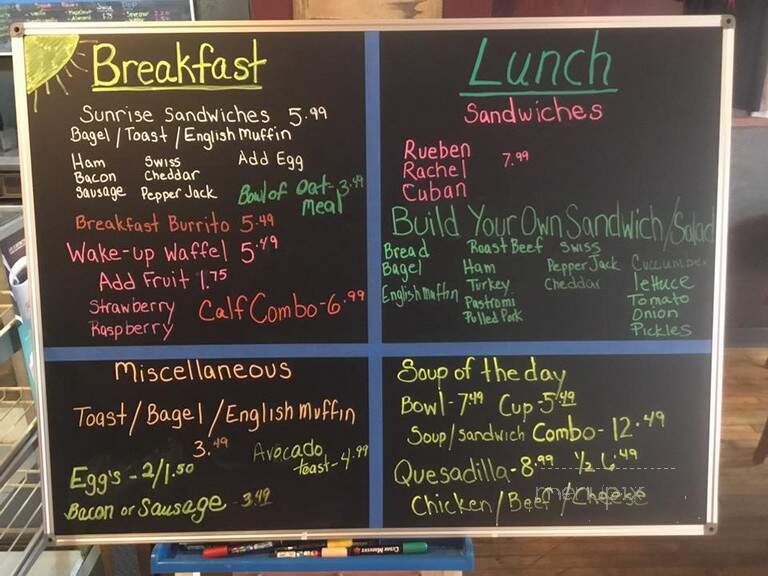 Breakfast
Sunrise Sandwiches 5.99
Bagel/Toast/English Muffin
Ham Swiss Add Egg
Bacon Cheddar
Sausage Pepper Jack
Bowl of Oat- 3.49
meal
Breakfast Burrito 5.49
Wake-up Waffel 5.49
Add Fruit 1.75
Strawberry
Raspberry
Calf Combo-6.99
Lunch
Sandwiches
Rueben
Rachel 7.99
Cuban
Build Your Own Sandwich/Salad
Bread Roast Beef Swiss
Bagel Ham Pepper Jack
English Muffin Turkey Cheddar lettuce
Pastromi Tomato
Pulled Pork Onion
Pickles
Miscellaneous
Toast/Bagel/English Muffin
3.49
Avocado
toast-4.99
Egg's - 2/1.50
Bacon or Sausage - 3.49
Soup of the day
Bowl-7.49 Cup-5.49
Soup/sandwich Combo-12.49
Quesadilla-8.99 1/2 6.49
Chicken/Beef/Cheese
menupix